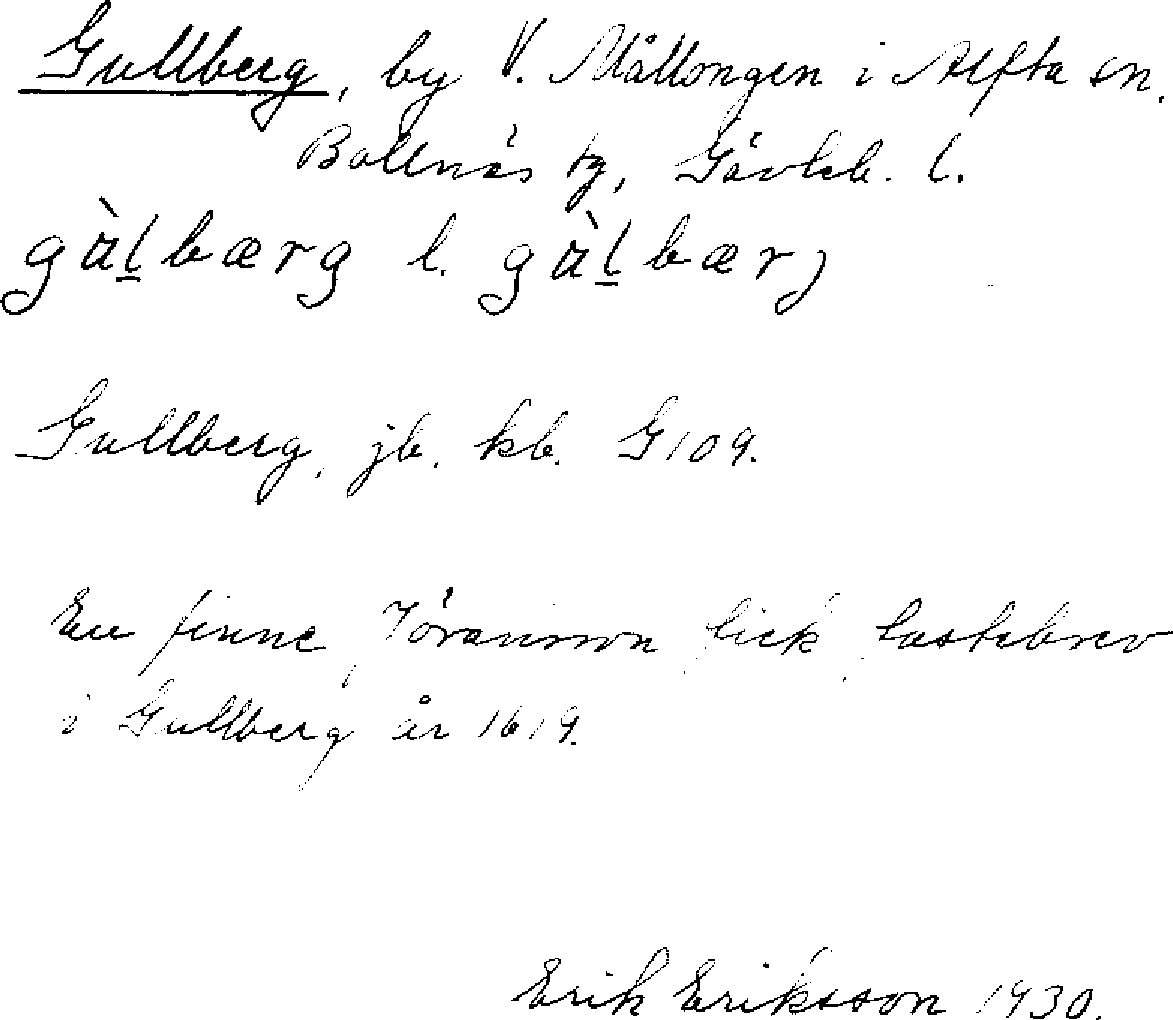 Gullberg, by V. Mållongen i Alfta sn.
Bollnäs tg, Gävleb. l.
gàl̠bærg l. gàl̠bærj
Gullberg, jb. kb. G 109.
En finne, Jöransson fick, fastebrev
i Gullberg år 1619.
Erik Eriksson 1930.